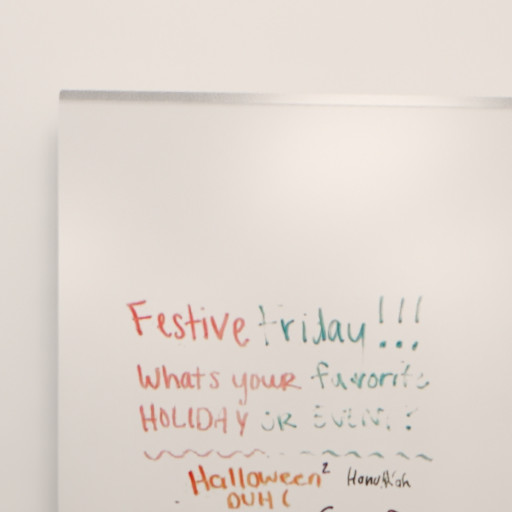 Festive friday!!!
Whats your favorite
HOLIDAY OR EVENT?
Halloween² Hanukkah
DUH (